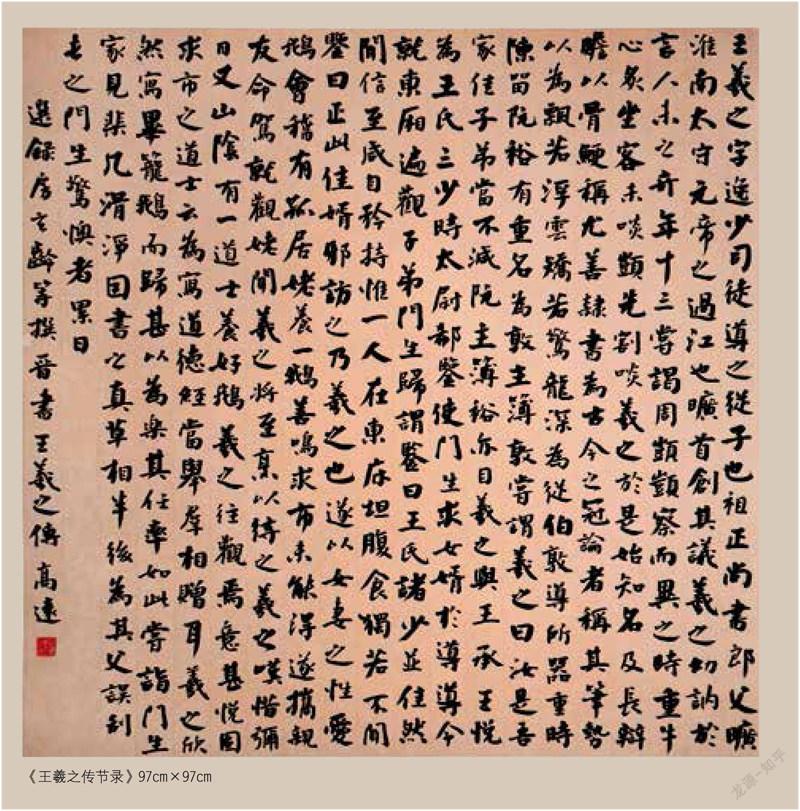 王羲之字逸少司徒導之從子也祖正尚書郎父曠
淮南太守元帝之過江也曠首創其議羲之幼訥於
言人未之奇年十三嘗謁周顗顗察而異之時重牛
心炙坐客未啖顗先割啖羲之於是始知名及長辯
贍以骨鯁稱尤善隸書為古今之冠論者稱其筆勢
以為飄若浮雲矯若驚龍深為從伯敦導所器重時
陳留阮裕有重名為敦主簿敦嘗謂羲之曰汝是吾
家佳子弟當不減阮主簿裕亦目羲之與王承王悅
為王氏三少時太尉郗鑒使門生求女婿於導導令
就東廂遍觀子弟門生歸謂鑒曰王氏諸少並佳然
聞信至咸自矜持惟一人在東床坦腹食獨若不聞
鑒曰正此佳婿邪訪之乃羲之也遂以女妻之性愛
鵝會稽有孤居姥養一鵝善鳴求市未能得遂攜親
友命駕就觀姥聞羲之將至烹以待之羲之嘆惜彌
日又山陰有一道士養好鵝羲之往觀焉意甚悅固
求市之道士云為寫道德經當舉群相贈耳羲之欣
然寫畢籠鵝而歸甚以為樂其任率如此嘗詣門生
家見棐几滑淨因書之真草相半後為其父誤刮
去之門生驚懊者累日
選錄房玄齡等撰晉書王羲之傳 高遠
《王羲之传节录》97cm×97cm
龙源-知乎